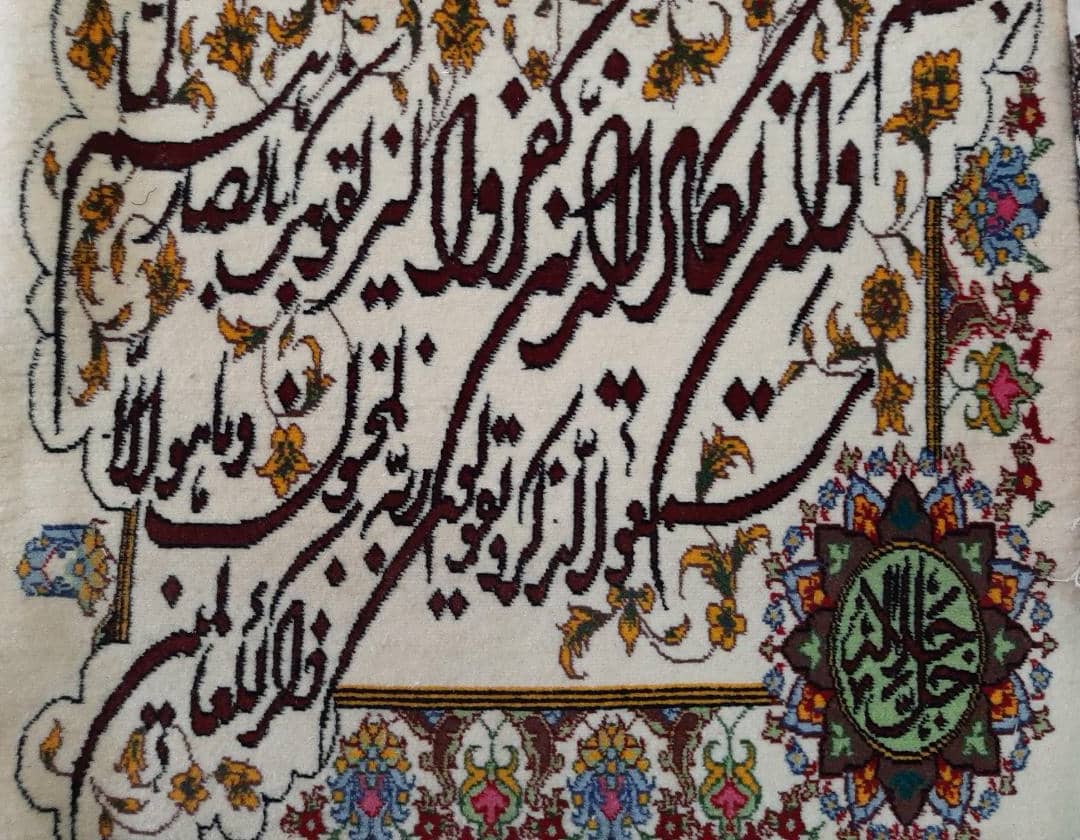 وان یکاد الذین کفروا لیزلقونک بابصارهم لما
سمعوا الذکر و یقولون انه لمجنون و ما هو الا
ذکر للعالمین
جل جلاله